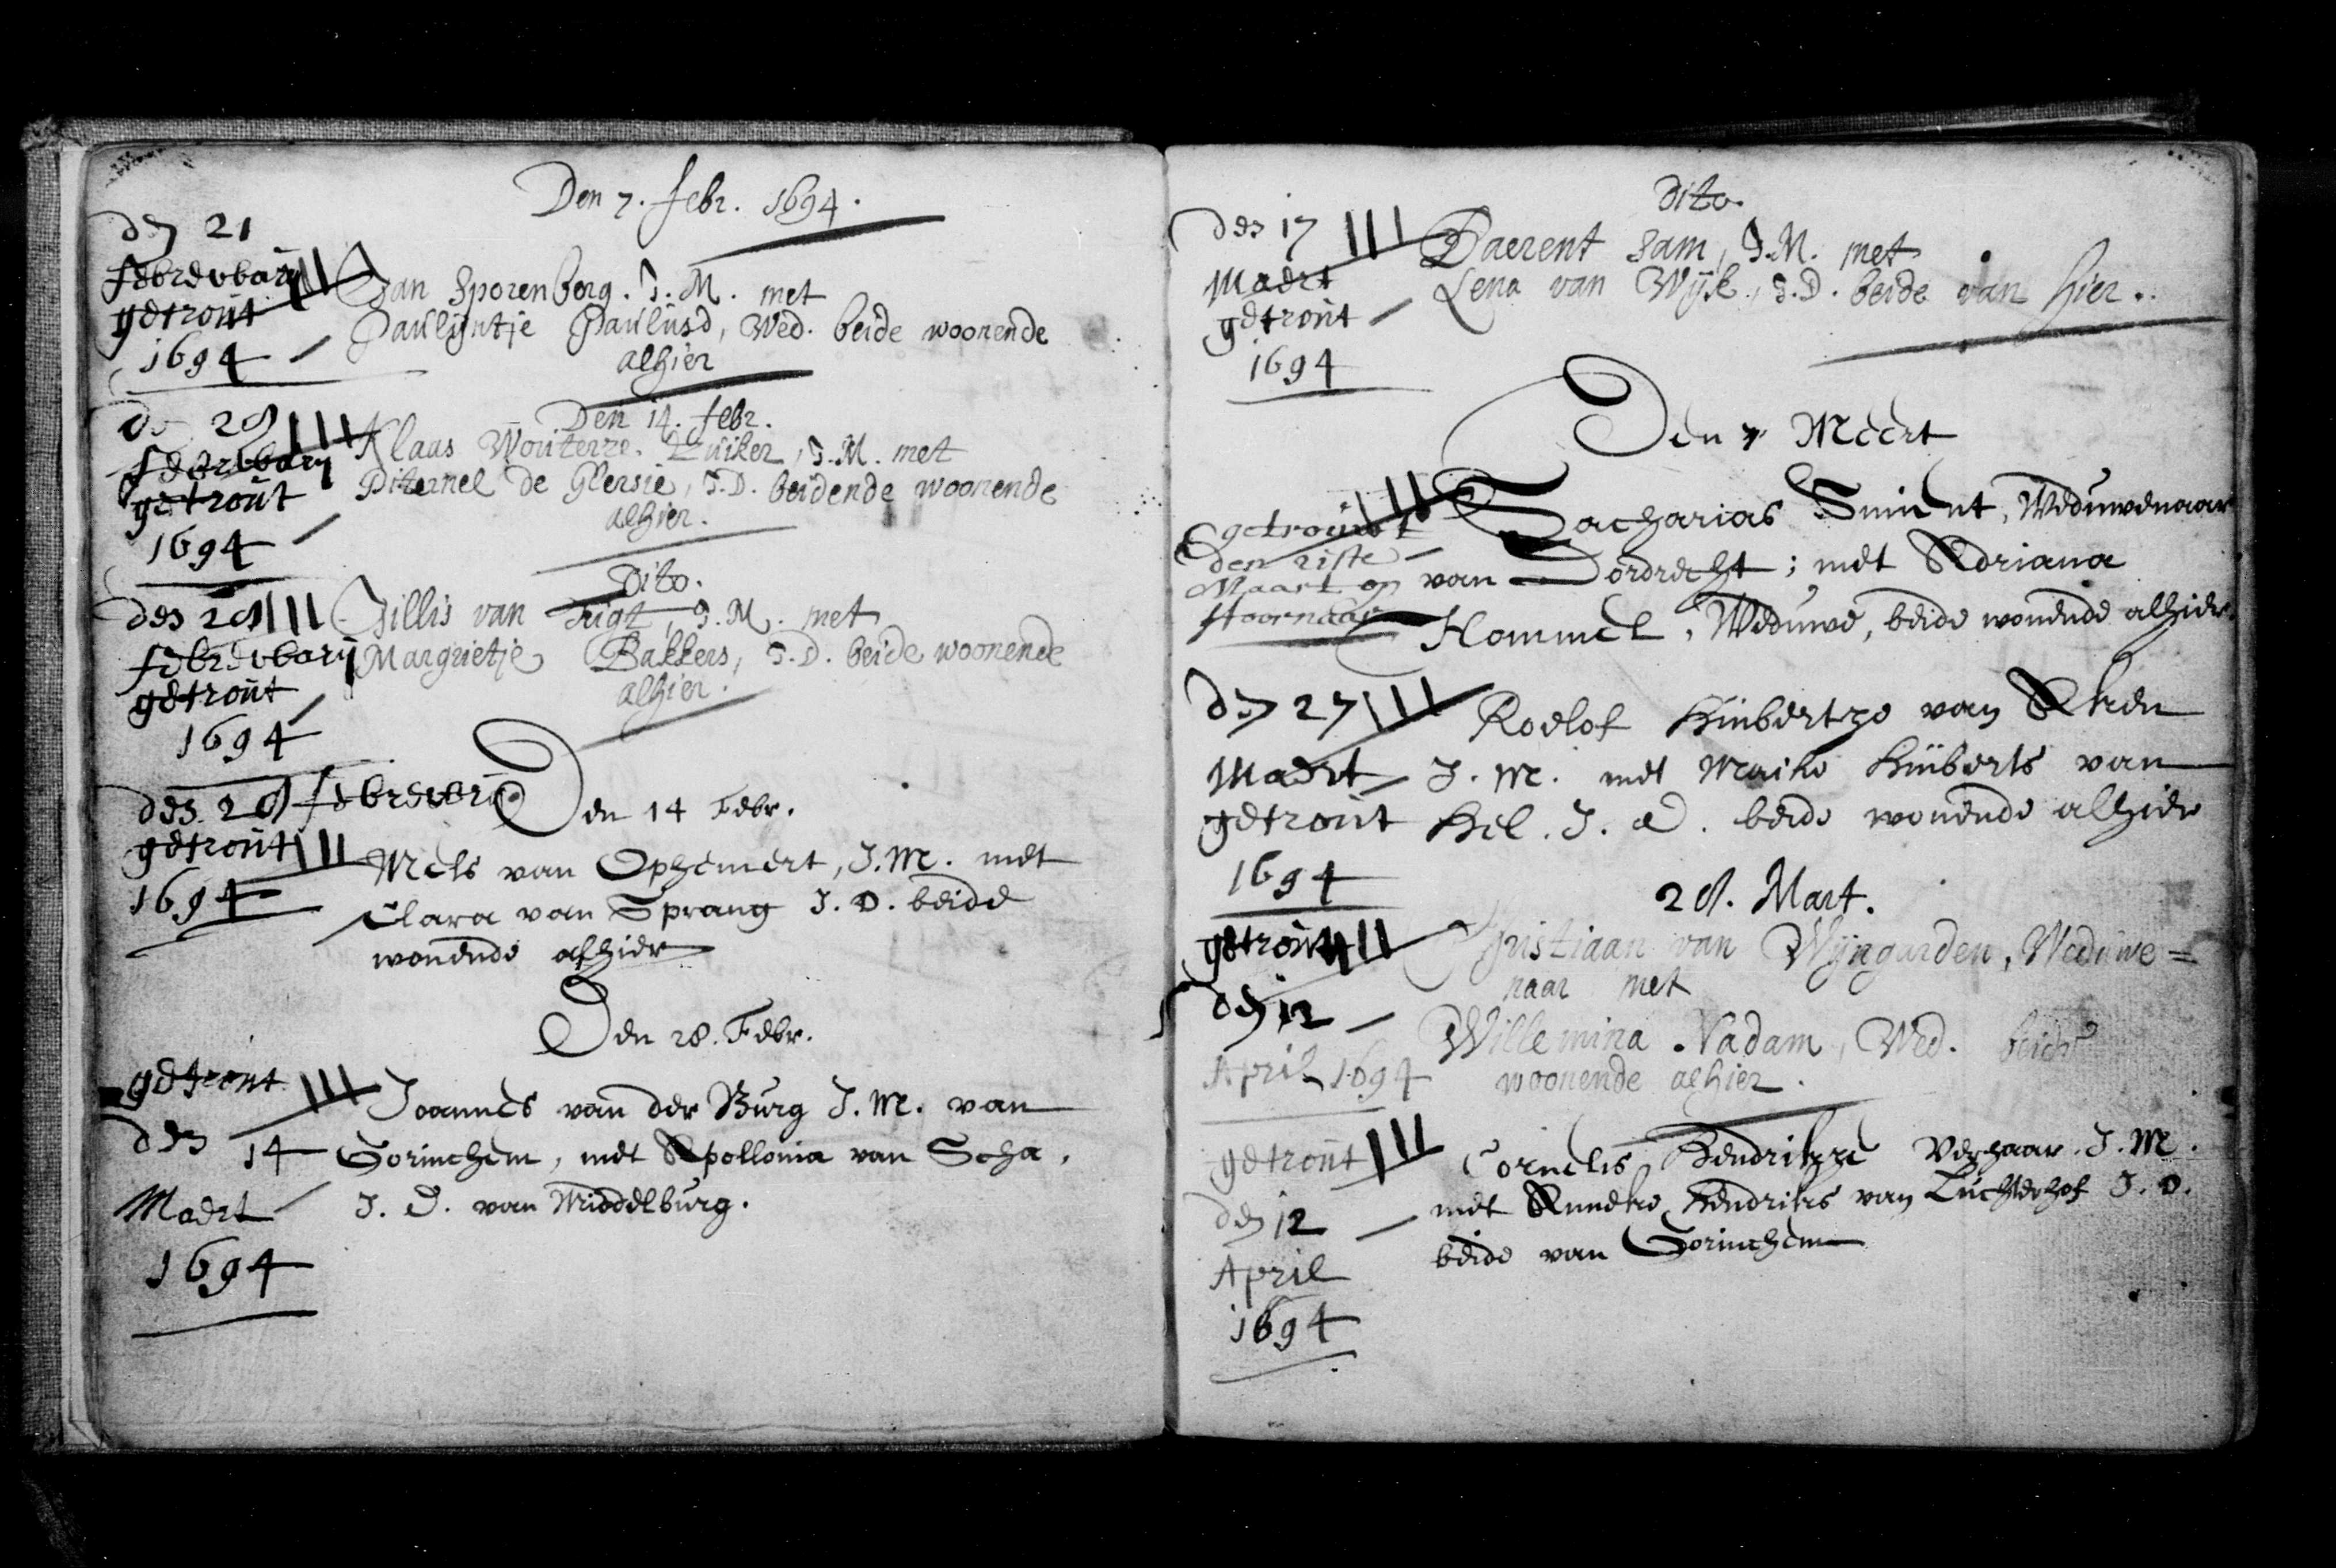 Den 7. febr. 1694.
den 21
februbary
getrout
1694
Jan Sporenberg. J. M. met
Paulijntje Paulusd, Wed. beide woonende
alhier
Den 14. febr.
de 28
februbary
getrout
1694
Klaas Wouterze. Kuiker, J. M. met
Piternel de Clersie, J. D. beidende woonende
alhier.
Dito.
den 28
februbary
getrout
1694
Jillis van Trigt, J. M. met
Margrietje Bakkers, J. D. beide woonende
alhier.
den 28 februbary
getrout
1694
Den 14 Febr.
Mels van Ophemert, J. M. met
Clara van Sprang J. D. beide
wonende alhier
Den 28. Febr.
getrout
den 14
Maert
1694
Joannes van der Burg J. M. van
Gorinchem, met Apollonia van Scha,
J. D. van Middelburg.
dito.
den 17
Maert
getrout
1694
Baerent Sam, J. M. met
Lena van Wijk, J. D. beide van hier.
Den 7 Meert
getrouwt
den 21ste
Maart op
Hoornaar
Sacharias Smient, Weduwenaar
van Dordrecht; met Adriana
Hommel, Weduwe, beide wonende alhier.
den 27
Maert
getrout
1694
Roelof Huibertze van Aken
J. M. met Maike Huiberts van
Hel. J. D. beide wonende alhier
28. Mart.
getrout
den 12
April 1694
Christiaan van Wijngarden, Weduwe=
naar met
Willemina Nadam, Wed. beide
woonende alhier.
getrout
den 12
April
1694
Cornelis Hendrikze Verhaar. J. M.
met Anneke Hendriks van Luchterhof J. D.
beide van Gorinchem